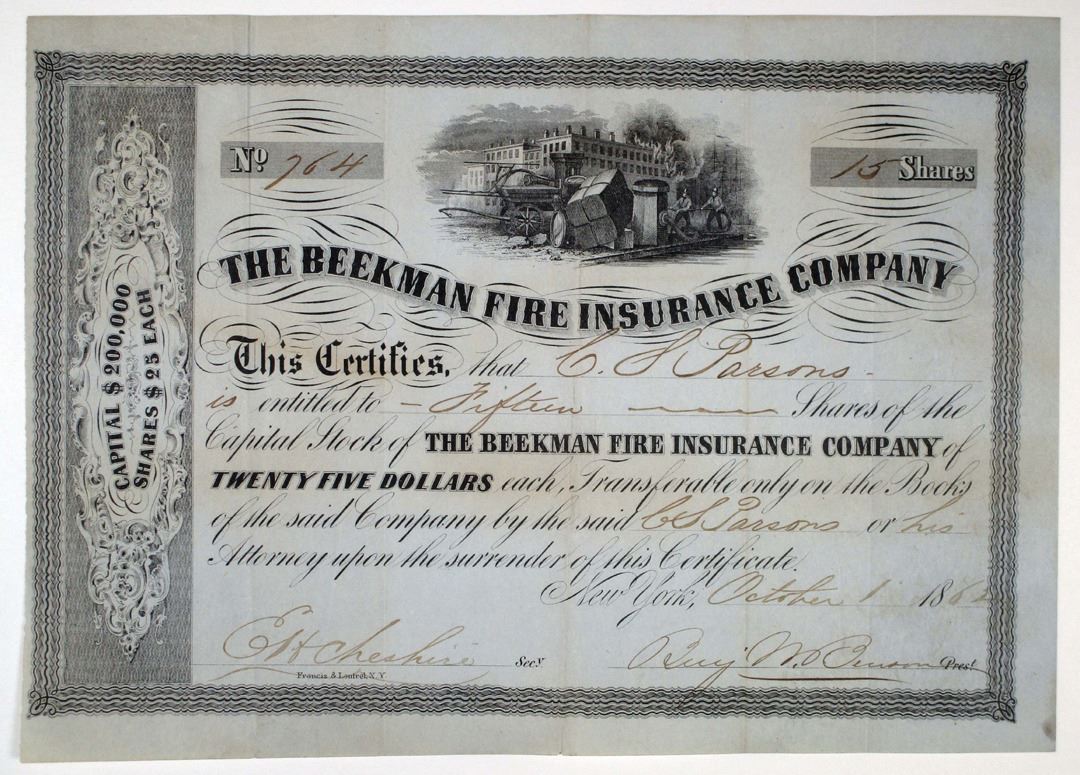 Nº 764
15 Shares
THE BEEKMAN FIRE INSURANCE COMPANY
CAPITAL $200,000
SHARES $25 EACH
This Certifies, that C. S Parsons -
is entitled to - Fifteen Shares of the
Capital Stock of THE BEEKMAN FIRE INSURANCE COMPANY of
TWENTY FIVE DOLLARS each, Transferable only on the Books
of the said Company by the said C S Parsons or his
Attorney upon the surrender of this Certificate.
New York, October 1 186
E H Cheshire Secy
Benj W. Pres!
Francis & Loutrel, N.Y.